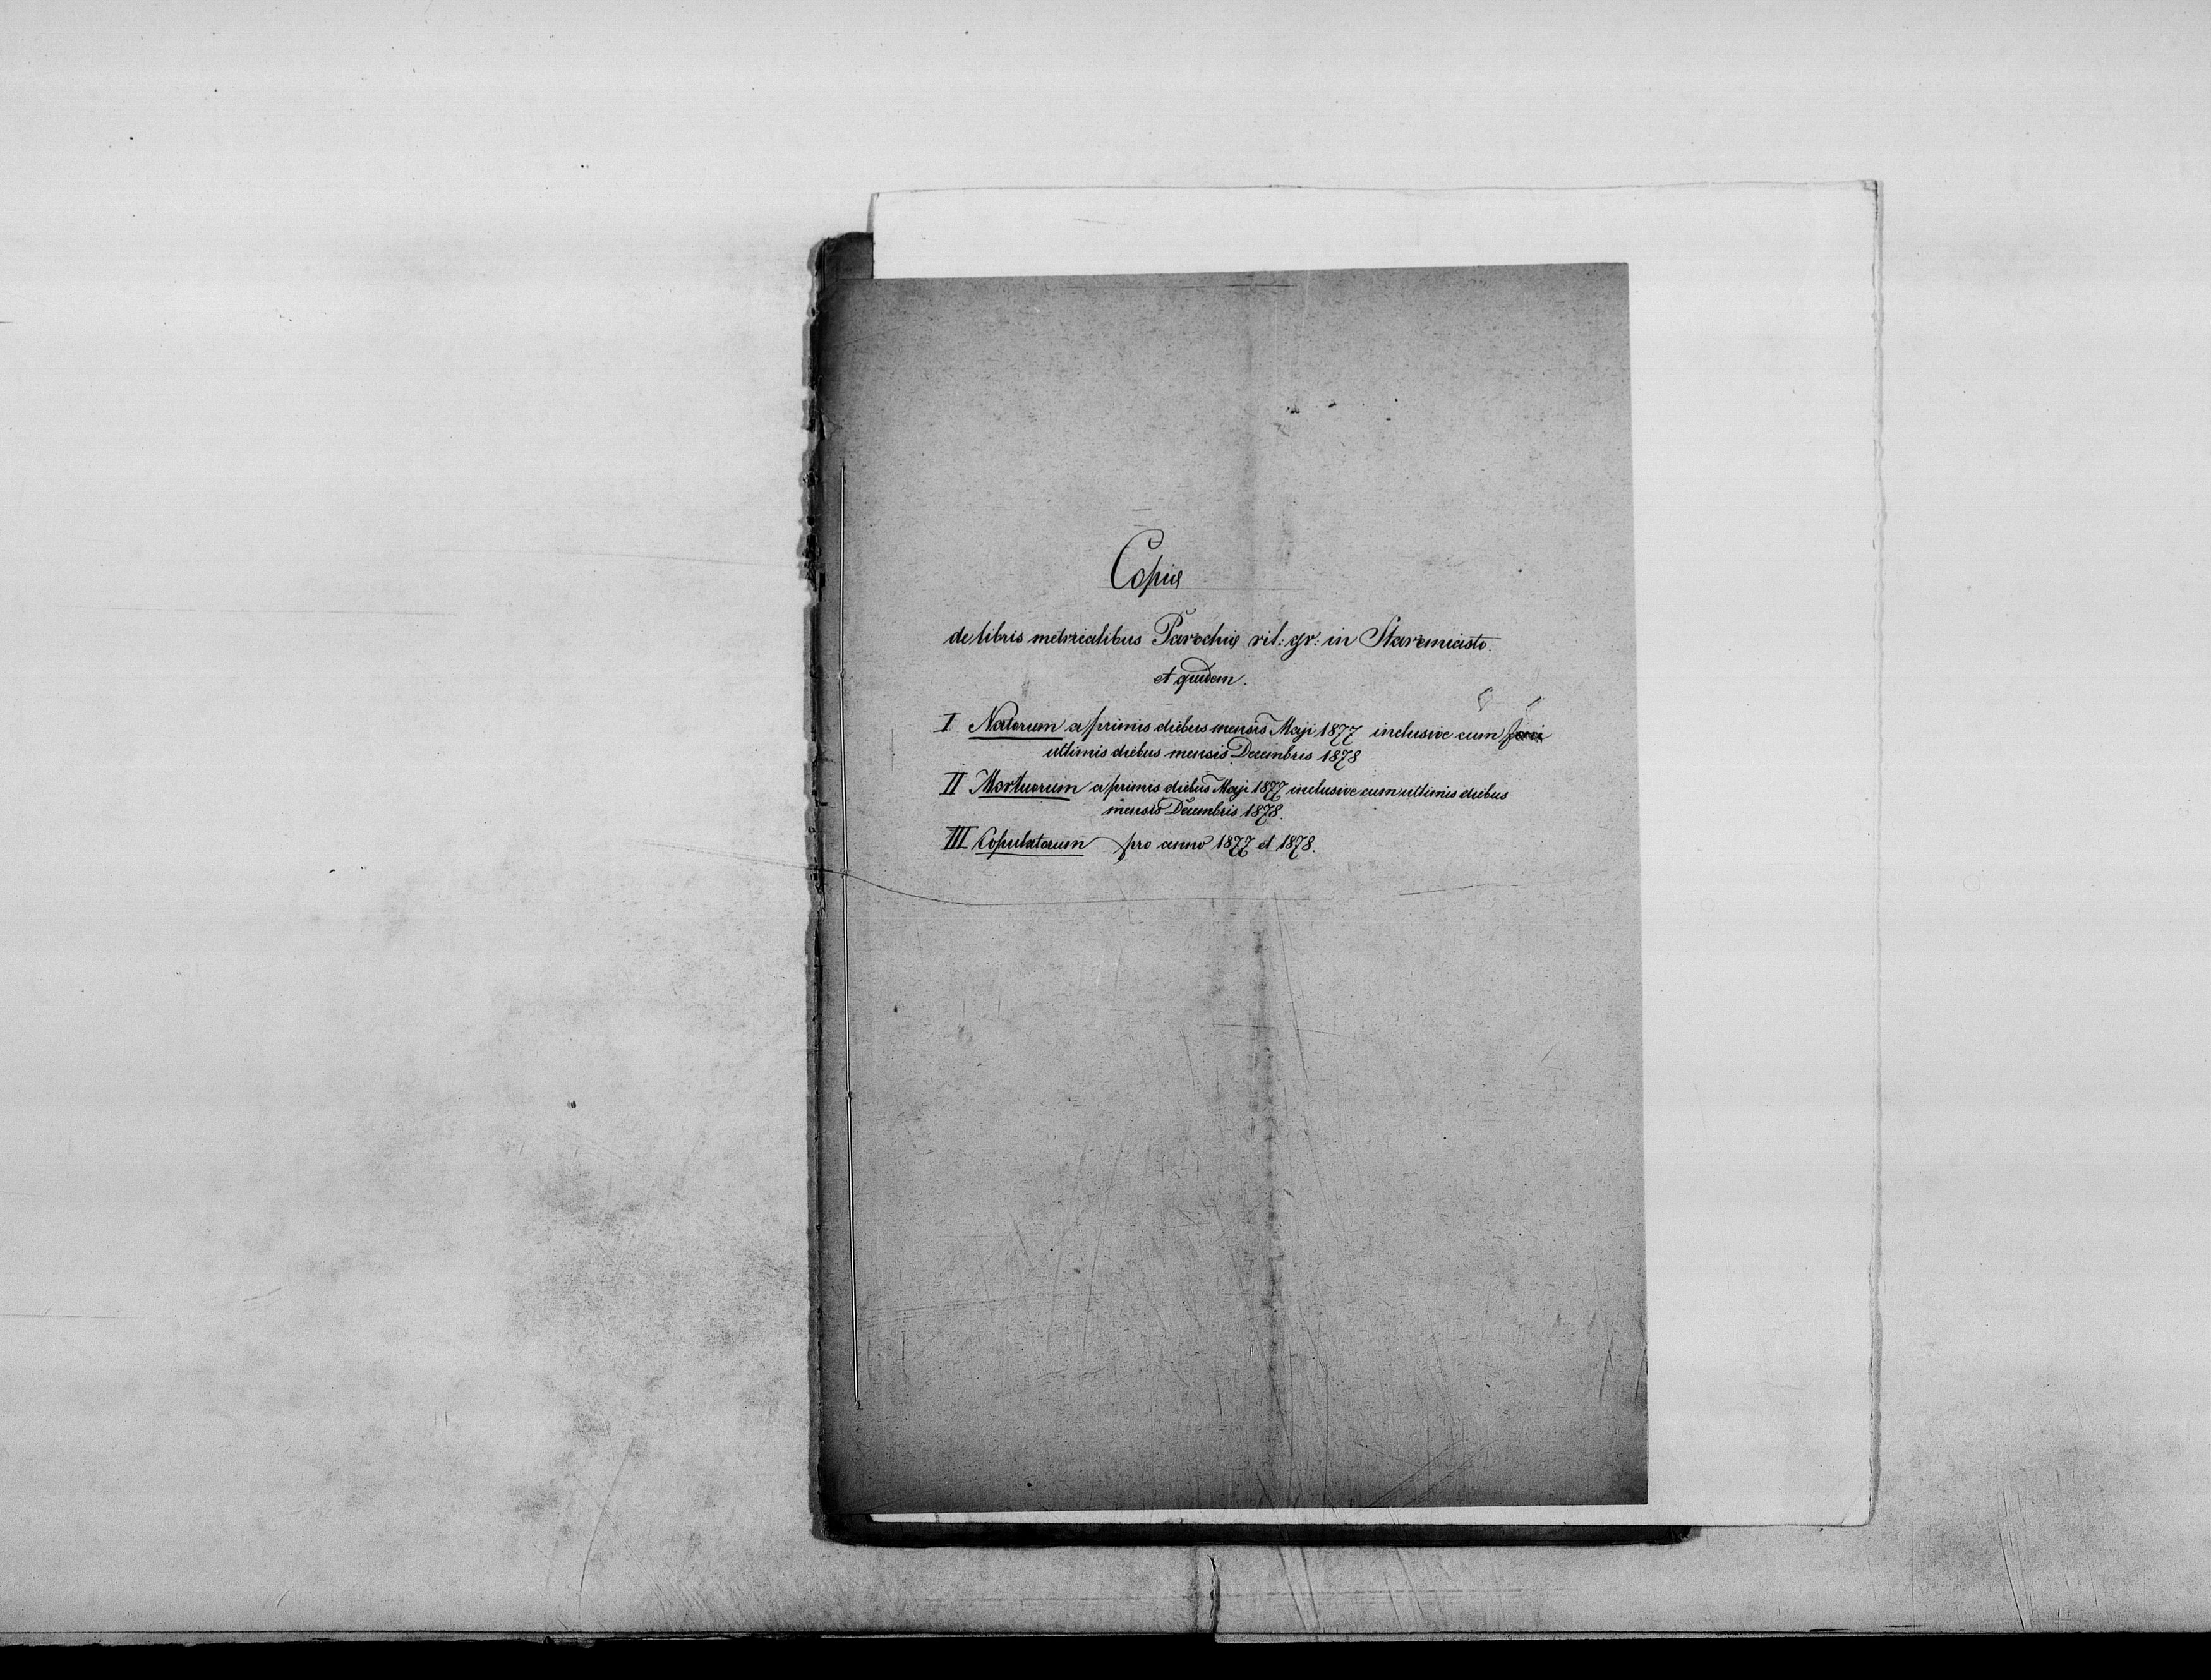 Copiæ
de libris metricalibus Parochiæ rit: gr: in Staremiasto.
et quidem.
I Natorum a primis diebus mensis Maji 1877 inclusive cum
ultimis diebus mensis Decembris 1878
II Mortuorum a primis diebus Maji 1877 inclusive cum ultimis diebus
mensis Decembris 1878.
III Copulatorum pro anno 1877 et 1878.